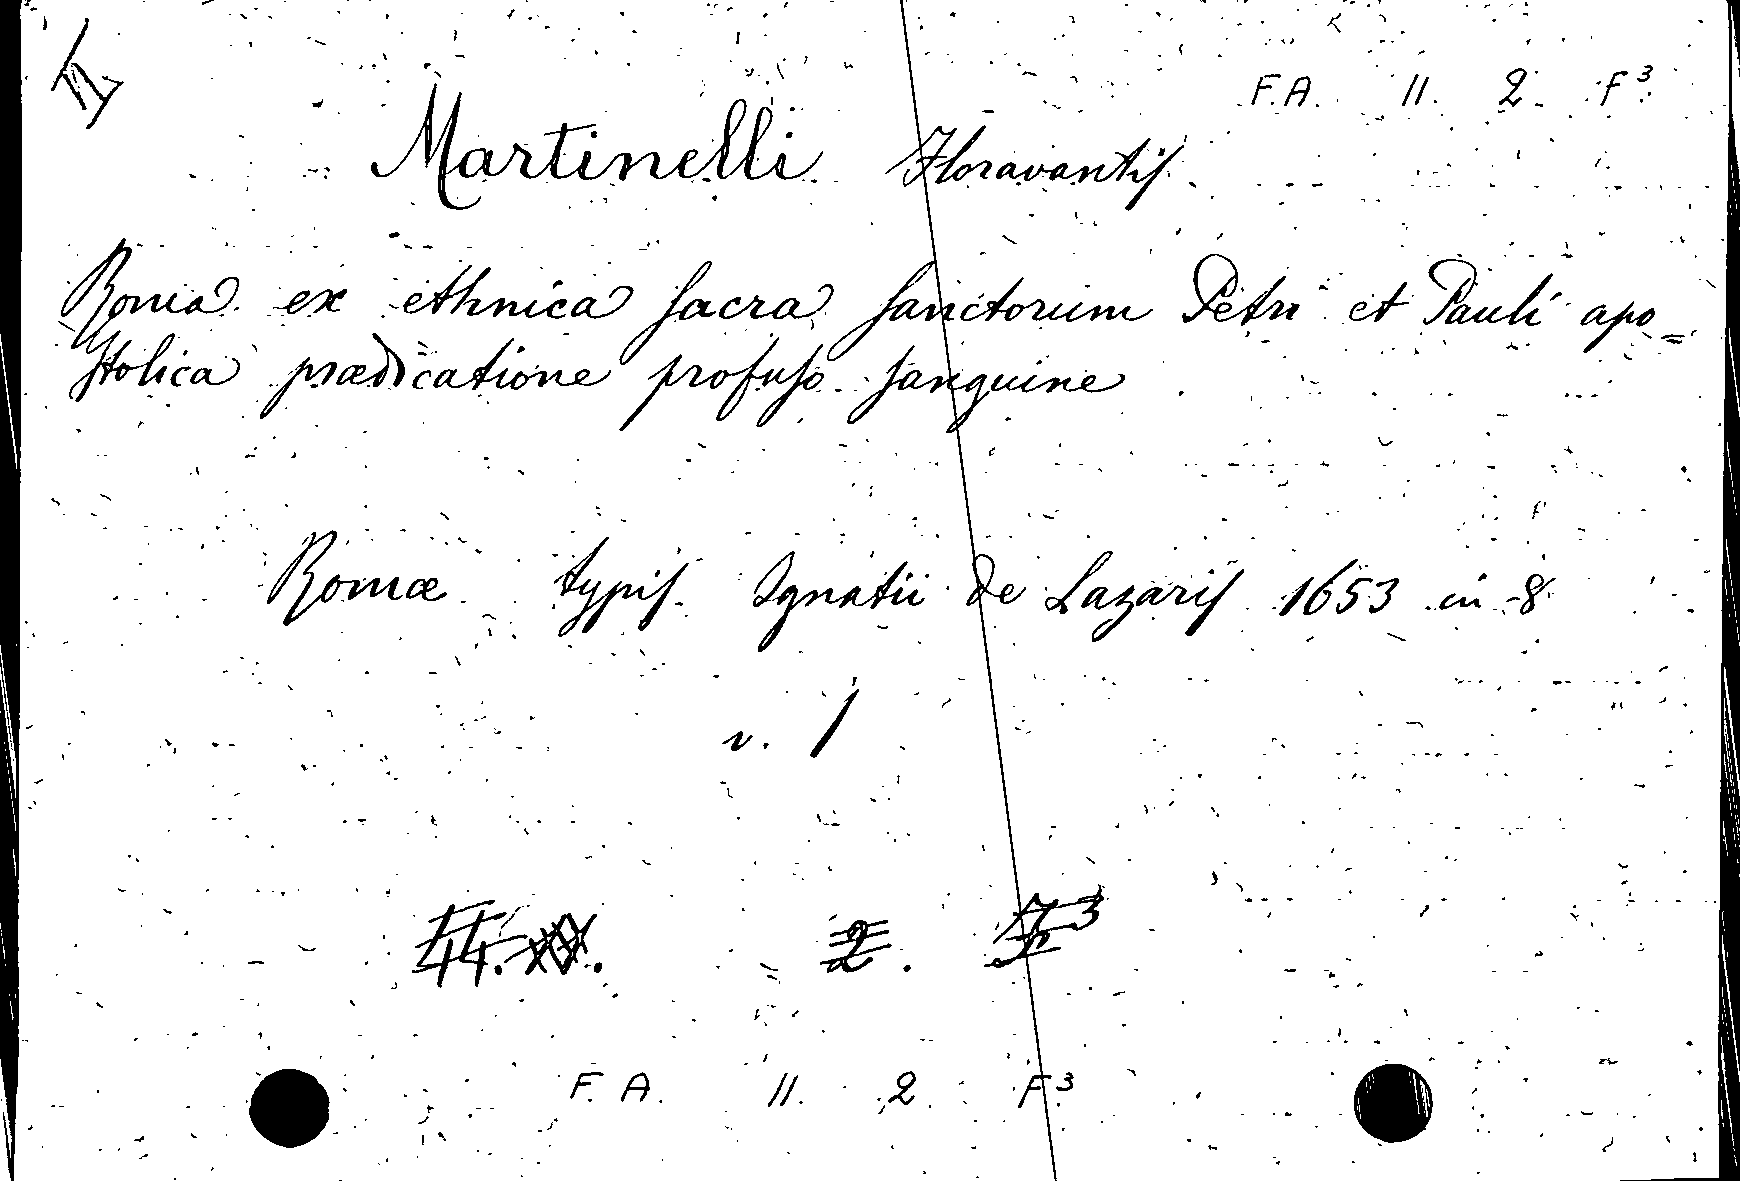 F.A. 11. 2. F³.
Martinelli Floravantis
Roma ex ethnica sacra sanctorum Petri et Pauli apo=
stolica prædicatione profuso sanguine
Romæ typis Ignatii de Lazaris 1653 in 8
v. 1
2. F³
F. A. 11. 2 F³